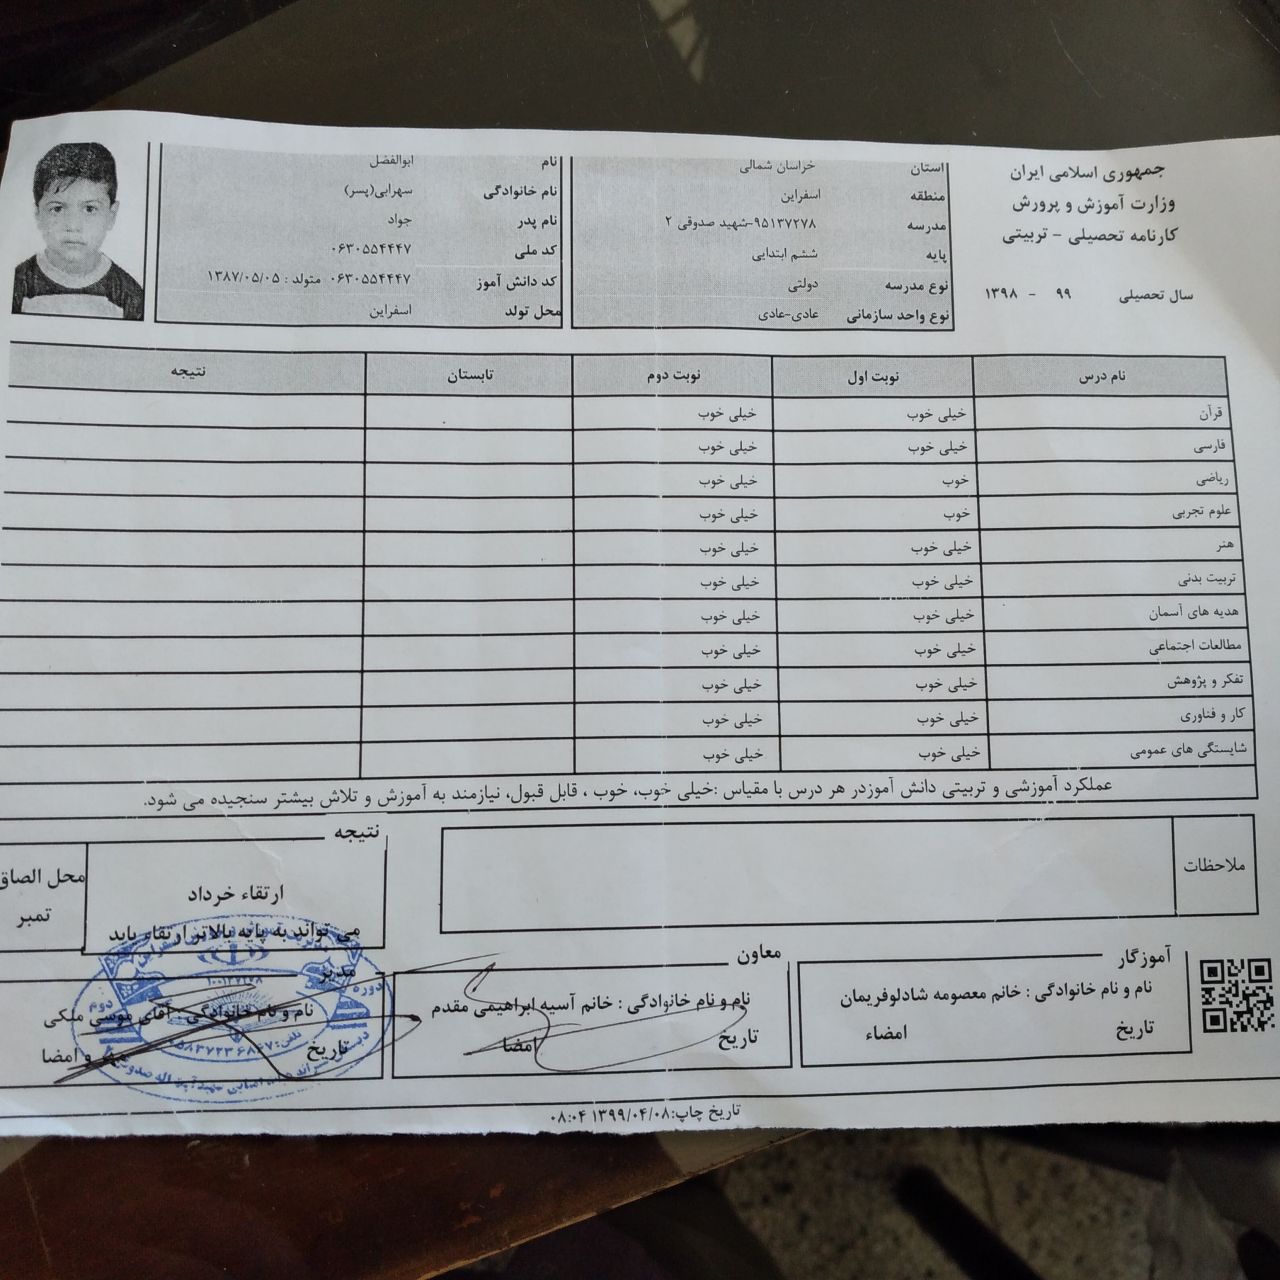 جمهوری اسلامی ایران
وزارت آموزش و پرورش
کارنامه تحصیلی - تربیتی
سال تحصیلی ۹۹ - ۱۳۹۸
استان خراسان شمالی
منطقه اسفراین
مدرسه ۹۵۱۳۷۲۷۸-شهید صدوقی ۲
پایه ششم ابتدایی
نوع مدرسه دولتی
نوع واحد سازمانی عادی-عادی
نام ابوالفضل
نام خانوادگی سهرابی(پسر)
نام پدر جواد
کد ملی ۰۶۳۰۵۵۴۴۴۷
کد دانش آموز ۰۶۳۰۵۵۴۴۴۷ متولد : ۱۳۸۷/۰۵/۰۵
محل تولد اسفراین
نام درس نوبت اول نوبت دوم تابستان نتیجه
قرآن خیلی خوب خیلی خوب
فارسی خیلی خوب خیلی خوب
ریاضی خوب خیلی خوب
علوم تجربی خوب خیلی خوب
هنر خیلی خوب خیلی خوب
تربیت بدنی خیلی خوب خیلی خوب
هدیه های آسمان خیلی خوب خیلی خوب
مطالعات اجتماعی خیلی خوب خیلی خوب
تفکر و پژوهش خیلی خوب خیلی خوب
کار و فناوری خیلی خوب خیلی خوب
شایستگی های عمومی خیلی خوب خیلی خوب
عملکرد آموزشی و تربیتی دانش آموزدر هر درس با مقیاس :خیلی خوب، خوب ، قابل قبول، نیازمند به آموزش و تلاش بیشتر سنجیده می شود.
ملاحظات
نتیجه
ارتقاء خرداد
می تواند به پایه بالاتر ارتقاء یابد
محل الصاق
تمبر
آموزگار
نام و نام خانوادگی : خانم معصومه شادلوفریمان
تاریخ امضاء
معاون
نام و نام خانوادگی : خانم آسیه ابراهیمی مقدم
تاریخ امضا
مدیر
نام و نام خانوادگی : آقای موسی ملکی
تاریخ مهر و امضا
دوره دوم
تاریخ چاپ:۱۳۹۹/۰۴/۰۸ ۰۸:۰۴